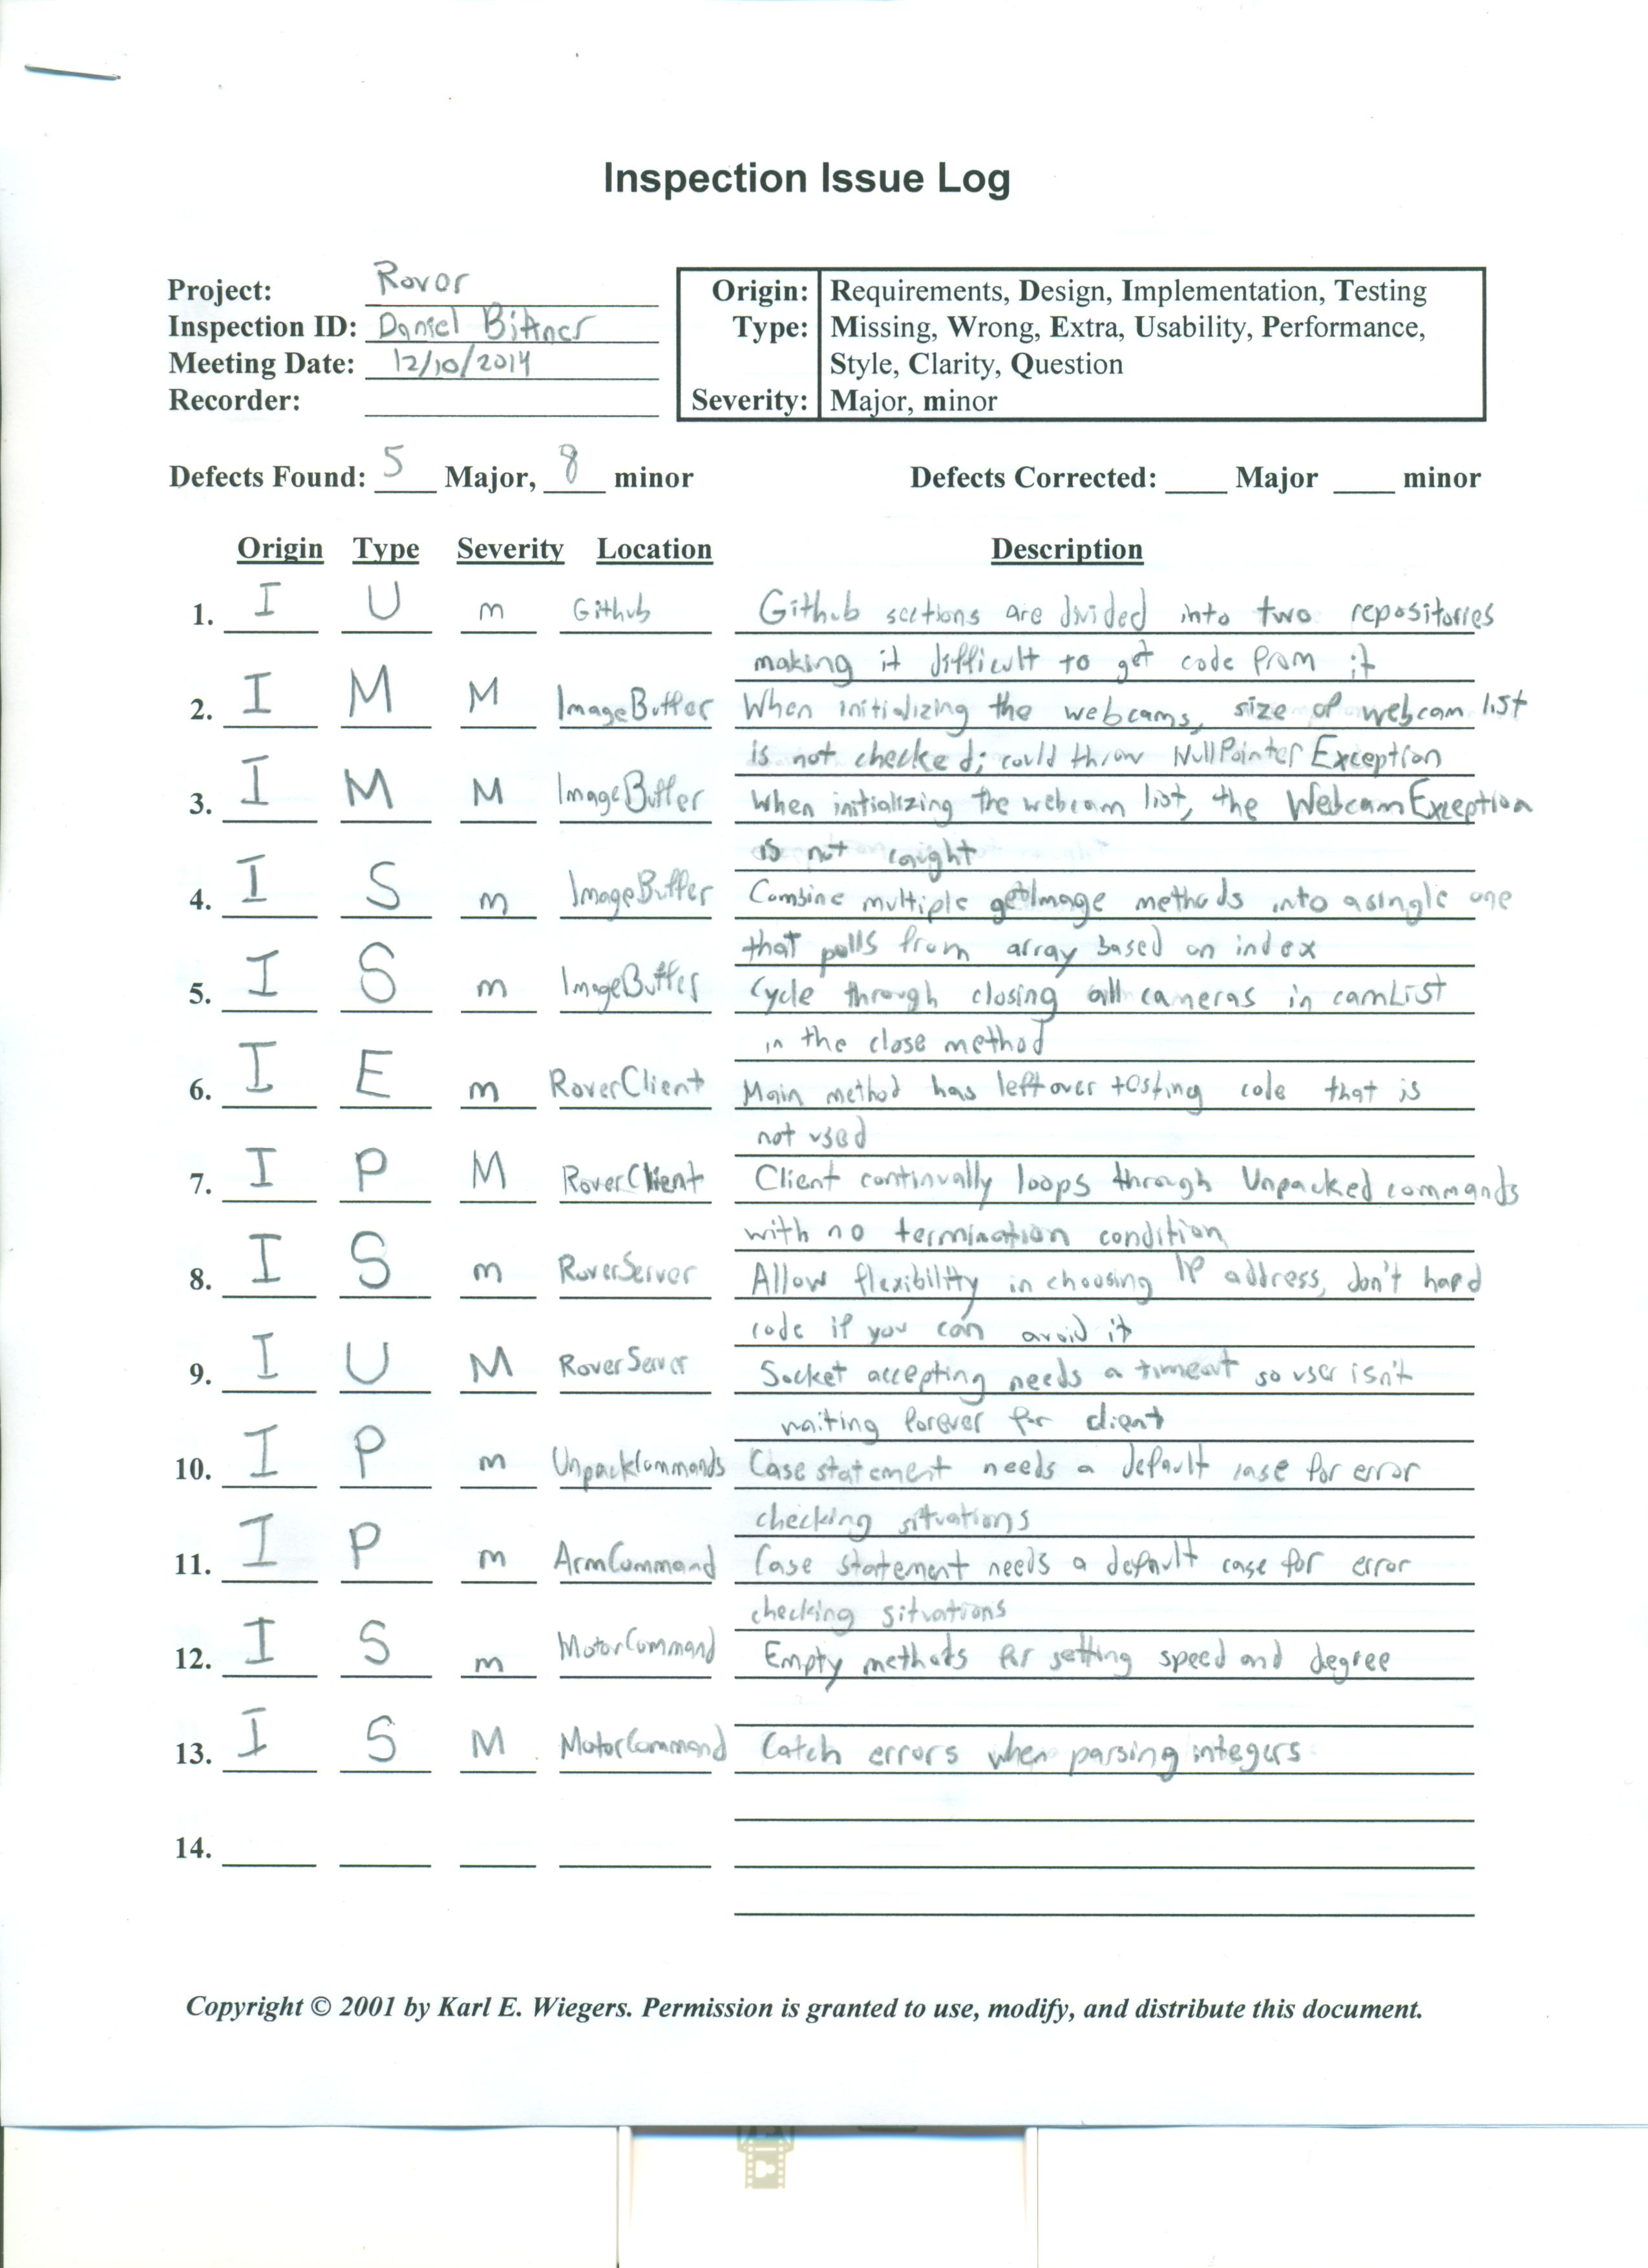 Inspection Issue Log
Project: Rover
Inspection ID: Daniel Bittner
Meeting Date: 12/10/2014
Recorder:
Origin: Requirements, Design, Implementation, Testing
Type: Missing, Wrong, Extra, Usability, Performance,
Style, Clarity, Question
Severity: Major, minor
Defects Found: 5 Major, 8 minor Defects Corrected: ____ Major ____ minor
Origin Type Severity Location Description
1. I U m Github Github sections are divided into two repositories
making it difficult to get code from it
2. I M M ImageBuffer When initializing the webcams, size of webcam list
is not checked; could throw NullPointerException
3. I M M ImageBuffer When initializing the webcam list, the WebcamException
is not caught
4. I S m ImageBuffer Combine multiple getImage methods into a single one
that pulls from array based on index
5. I S m ImageBuffer Cycle through closing all cameras in camList
in the close method
6. I E m RoverClient Main method has leftover testing code that is
not used
7. I P M RoverClient Client continually loops through Unpacked commands
with no termination condition
8. I S m RoverServer Allow flexibility in choosing IP address, don't hard
code if you can avoid it
9. I U M RoverServer Socket accepting needs a timeout so user isn't
waiting forever for client
10. I P m UnpackCommands Case statement needs a default case for error
checking situations
11. I P m ArmCommand Case statement needs a default case for error
checking situations
12. I S m MotorCommand Empty methods for setting speed and degree
13. I S M MotorCommand Catch errors when parsing integers
14.
Copyright © 2001 by Karl E. Wiegers. Permission is granted to use, modify, and distribute this document.